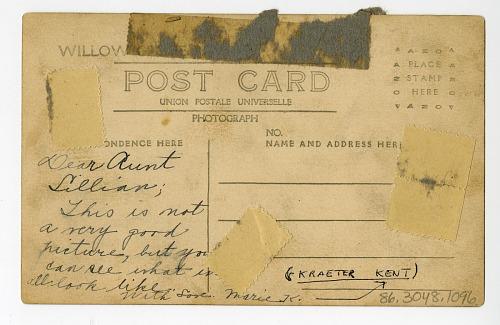 WILLOW
POST CARD
UNION POSTALE UNIVERSELLE
PHOTOGRAPH
AZOA
PLACE
STAMP
HERE
AZOV
NDENCE HERE
NO.
NAME AND ADDRESS HERE
Dear Aunt
Lillian;
This is not
a very good
picture, but you
can see what
all look like.
With Love Marie K.
(KRAETER KENT)
86.3048.1096